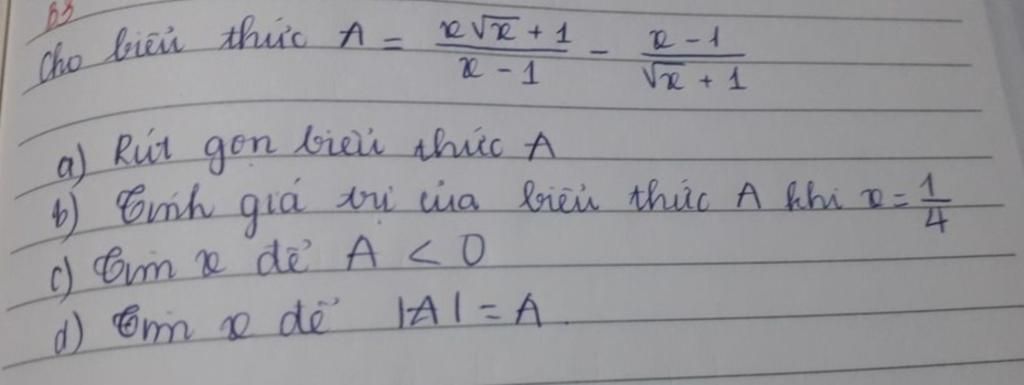 B3
Cho biểu thức A = \frac{x\sqrt{x} + 1}{x - 1} - \frac{x - 1}{\sqrt{x} + 1}
a) Rút gọn biểu thức A
b) Tính giá trị của biểu thức A khi x = \frac{1}{4}
c) Tìm x để A < 0
d) Tìm x để |A| = A.